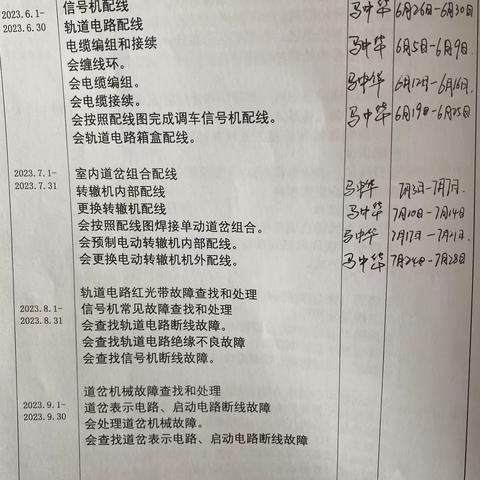 2023.6.1-
2023.6.30
信号机配线 马中华 6月26日-6月30日
轨道电路配线
电缆编组和接续 马中华 6月5日-6月9日
会缠线环。
会电缆编组。 马中华 6月12日-6月16日
会电缆接续。
会按照配线图完成调车信号机配线。 马中华 6月19日-6月25日
会轨道电路箱盒配线。
2023.7.1-
2023.7.31
室内道岔组合配线
转辙机内部配线 马中华 7月3日-7月7日.
更换转辙机配线 马中华 7月10日-7月14日
会按照配线图焊接单动道岔组合。 马中华 7月17日-7月21日.
会预制电动转辙机内部配线。
会更换电动转辙机机外配线。 马中华 7月24日-7月28日
2023.8.1-
2023.8.31
轨道电路红光带故障查找和处理
信号机常见故障查找和处理
会查找轨道电路断线故障。
会查找轨道电路绝缘不良故障
会查找信号机断线故障。
2023.9.1-
2023.9.30
道岔机械故障查找和处理
道岔表示电路、启动电路断线故障
会处理道岔机械故障。
会查找道岔表示电路、启动电路断线故障